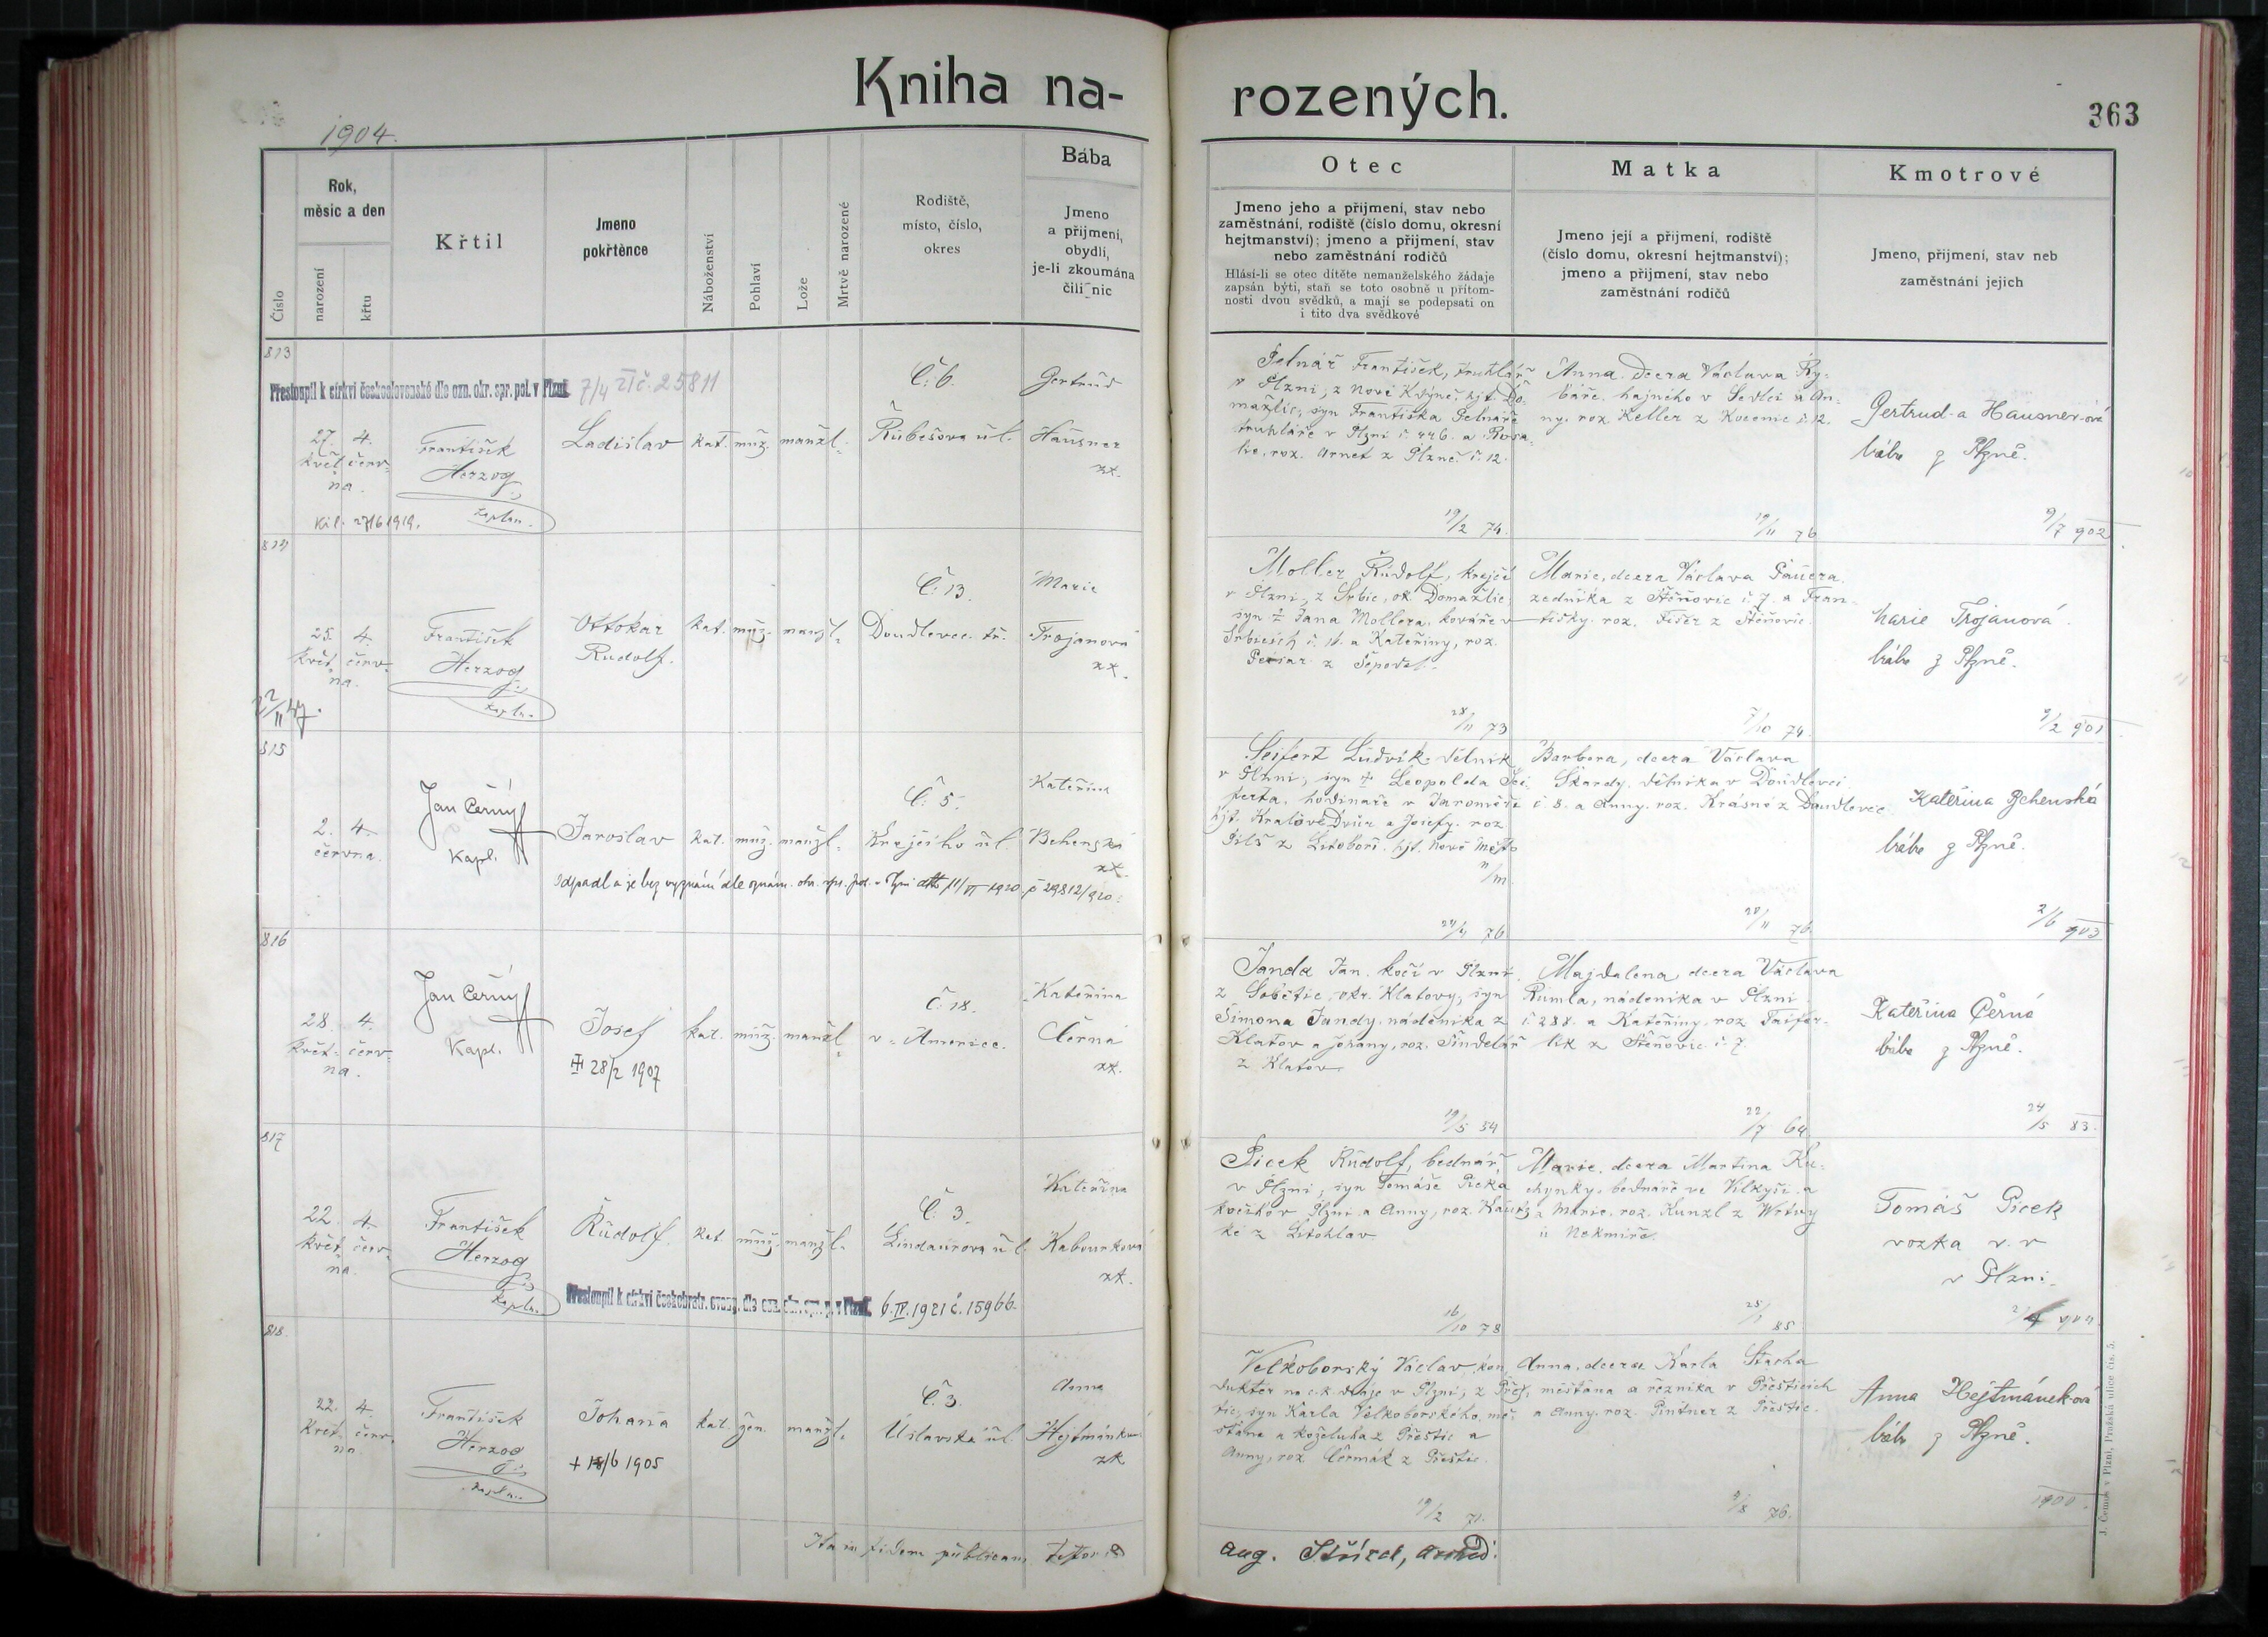 Kniha na-
rozených.
363
1904.
Číslo
Rok,
měsíc a den
narození
křtu
Křtil
Jmeno
pokřtěnce
Náboženství
Pohlaví
Lože
Mrtvě narozené
Rodiště,
místo, číslo,
okres
Bába
Jmeno
a přijmení,
obydlí,
je-li zkoumána
čili nic
Otec
Jmeno jeho a přijmení, stav nebo
zaměstnání, rodiště (číslo domu, okresní
hejtmanství); jmeno a přijmení, stav
nebo zaměstnání rodičů
Hlásí-li se otec dítěte nemanželského žádaje
zapsán býti, staň se toto osobně u přítom-
nosti dvou svědků, a mají se podepsati on
i tito dva svědkové
Matka
Jmeno její a přijmení, rodiště
(číslo domu, okresní hejtmanství);
jmeno a přijmení, stav nebo
zaměstnání rodičů
Kmotrové
Jmeno, přijmení, stav neb
zaměstnání jejich
813
Přestoupil k církvi československé dle ozn. okr. spr. pol. v Plzni 7/4 č. 25811
27. 4.
květ. červ-
na.
František
Herzog
kaplan.
Ladislav
kat. muž. manžl.
Č. 6.
Rubešova ul.
Gertrud
Hausner
zk.
František, truhlář
v Plzni; z Nové Kdyně, hjt. Do-
mažlic, syn Františka
truhláře v Plzni č. 446. a Rosa-
lie, roz. Arnet z Plzně č. 12.
19/2 74.
Anna. dcera Václava Ry-
báře, hajného v Sedlci a An-
ny, roz. Keller z č. 12.
19/11 76
Gertrud-a Hausner-ová
bába z Plzně.
9/7 902
814
25. 4.
květ. červ-
na.
22/11 47.
František
Herzog
kaplan.
Ottokar
Rudolf.
kat. muž. manžl.
Č. 13.
Doudlevec. tř.
Marie
Trojanová
zk.
Moller Rudolf, krejčí
v Plzni, z Srbic, ok. Domažlic
syn † Jana Mollera, kováře v
Srbicích č. a Kateřiny, roz.
28/11 73
Marie, dcera Václava
zedníka z Štěnovic č. 7. a Fran-
tišky, roz. Fišer z Štěnovic.
7/10 74.
Marie Trojanová
bába z Plzně.
9/2 901
815
2. 4.
června.
Jan Černý
Kapl.
Jaroslav
kat. muž. manžl.
Č. 5.
Krejčího ul.
Kateřina
Behenská
zk.
Odpadl a je bez vyznání dle oznám. okr. spr. pol. v Plzni dtto 11/VI 1920 č 29812/920.
Seifert Ludvík, dělník
v Plzni, syn † Leopolda Sei-
ferta, hodináře v Jaroměři
hjt. Králové Dvůr a Josefy, roz.
z hjt. Nové Město
n/m.
24/4 76
Barbora, dcera Václava
Škardy, dělníka v Doudlevci
č. 8. a Anny, roz. Krásné z Doudlevec.
28/11 76
Kateřina Behenská
bába z Plzně.
2/6 903
816
28. 4.
květ. červ-
na.
Jan Černý
Kapl.
Josef
28/2 1907
kat. muž. manžl.
Č. 18.
v Americe.
Kateřina
Černá
zk.
Janda Jan, kočí v Plzni
z Sobětic, okr. Klatovy, syn
Šimona Jandy, nádeníka z
Klatov a Johany, roz. Šindelář
z Klatov
19/5 54
Majdalena, dcera Václava
Rumla, nádeníka v Plzni
č 288. a Kateřiny, roz
z Štěnovic č. 7.
22/7 64
Kateřina Černá
bába z Plzně.
24/5 83.
817
22. 4.
květ. červ-
na.
František
Herzog
kaplan.
Rudolf.
kat. muž. manžl.
Č. 3.
Lindaurova ul.
Kateřina
Kabourková
zk.
Přestoupil k církvi českobratr. evang. dle ozn. okr. spr. p. v Plzni 6.IV.1921 č. 15966.
Picek Rudolf, bednář,
v Plzni, syn Tomáše Picka
v Plzni a Anny, roz.
z Litohlav
16/10 78
Marie, dcera Martina Ku-
chynky, bednáře ve Vlkýši a
Marie, roz. Kunzl z Wrtvy
u Nekmíře.
25/1 85
Tomáš Picek
vozka v. v
v Plzni.
904
818
22. 4.
Květ. červ.
na.
František
Herzog
kaplan.
Johana
+ 18/6 1905
kat. žen. manžl.
Č. 3.
Úslavská ul.
Anna
Hejtmánková
zk
Velkoborský Václav, kon-
duktér na c.k. dráze v Plzni, z Přeš-
tic, syn Karla Velkoborského, mě-
šťana a koželuha z Přeštic a
Anny, roz. Čermák z Přeštic.
19/2 71.
Anna, dcera Karla Stacha
měšťana a řezníka v Přešticích
a Anny, roz. Pintner z Přeštic.
9/8 76.
Anna Hejtmánek-ová
bába z Plzně.
1900.
Ita in fidem publicam testor
Aug. Archid.
J. Černoš v Plzni, Pražská ulice čís. 5.